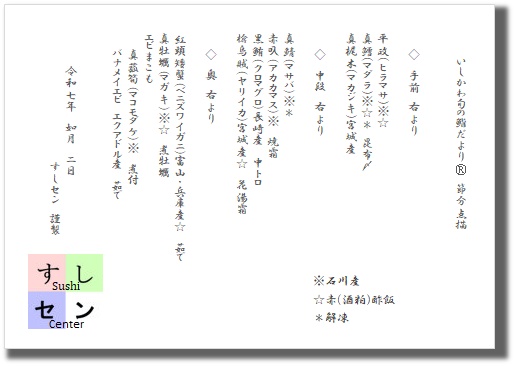 いしかわ旬の鮨だより® 節分点描
◇ 手前 右より
平政(ヒラマサ)※☆
真鱈(マダラ)※☆＊ 昆布〆
真梶木(マカジキ)宮城産
◇ 中段 右より
真鯖(マサバ)※＊
赤魳(アカカマス)※ 焼霜
黒鮪(クロマグロ)長崎産 中トロ
槍烏賊(ヤリイカ)宮城産☆ 花湯霜
◇ 奥 右より
紅頭矮蟹(ベニズワイガニ)富山・兵庫産☆ 茹で
真牡蠣(マガキ)※☆ 煮牡蠣
エビまこも
真菰筍(マコモダケ)※ 煮付
バナメイエビ エクアドル産 茹で
令和七年 如月 二日
すしセン 謹製
※石川産
☆赤(酒粕)酢飯
＊解凍
すし
Sushi
セン
Center